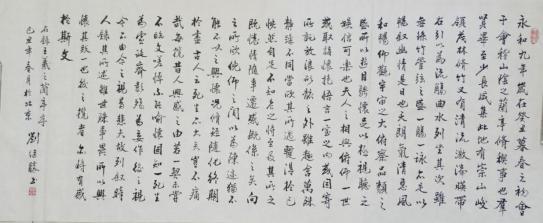 永和九年歲在癸丑暮春之初會
于會稽山陰之蘭亭脩禊事也群
賢畢至少長咸集此地有崇山峻
領茂林脩竹又有清流激湍暎帶
左右引以為流觴曲水列坐其次雖
無絲竹管弦之盛一觴一詠亦足以
暢敘幽情是日也天朗氣清惠風
和暢仰觀宇宙之大俯察品類之
盛所以遊目騁懷足以極視聽之
娛信可樂也夫人之相與俯仰一世
或取諸懷抱悟言一室之內或因寄
所託放浪形骸之外雖趣舍萬殊
靜躁不同當其欣於所遇蹔得於己
快然自足不知老之將至及其所之
既惓情隨事遷感慨係之矣向
之所欣俛仰之間以為陳迹猶不
能不以之興懷況脩短隨化終期
於盡古人云死生亦大矣豈不痛
哉每攬昔人興感之由若合一契未嘗
不臨文嗟悼不能喻之於懷固知一死生
為虛誕齊彭殤為妄作後之視
今亦由今之視昔悲夫故列敘時
人錄其所述雖世殊事異所以興
懷其致一也後之攬者亦將有感
於斯文
右錄王羲之蘭亭序
己丑年春月於北京 劉書